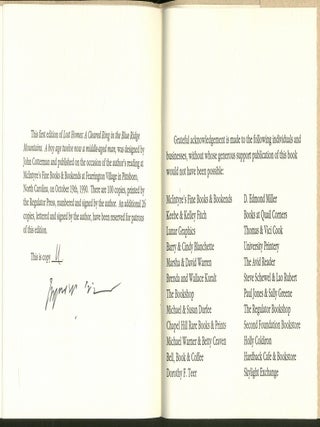 This first edition of Lost Homes: A Cleared Ring in the Blue Ridge
Mountains. A boy age twelve now a middle-aged man, was designed by
John Cotterman and published on the occasion of the author's reading at
McIntyre's Fine Books & Bookends at Fearrington Village in Pittsboro,
North Carolina, on October 19th, 1990. There are 100 copies, printed by
the Regulator Press, numbered and signed by the author. An additional 26
copies, lettered and signed by the author, have been reserved for patrons
of this edition.
This is copy
Grateful acknowledgement is made to the following individuals and
businesses, without whose generous support publication of this book
would not have been possible:
McIntyre's Fine Books & Bookends
Keebe & Kelley Fitch
Lunar Graphics
Barry & Cindy Blanchette
Marsha & David Warren
Brenda and Wallace Kuralt
The Bookshop
Michael & Susan Durfee
Chapel Hill Rare Books & Prints
Michael Warner & Betty Craven
Bell, Book & Coffee
Dorothy F. Teer
D. Edmond Miller
Books at Quail Corners
Thomas & Vici Cook
University Printery
The Avid Reader
Steve Schewel & Lao Rubert
Paul Jones & Sally Greene
The Regulator Bookshop
Second Foundation Bookstore
Holly Coldiron
Hardback Cafe & Bookstore
Skylight Exchange